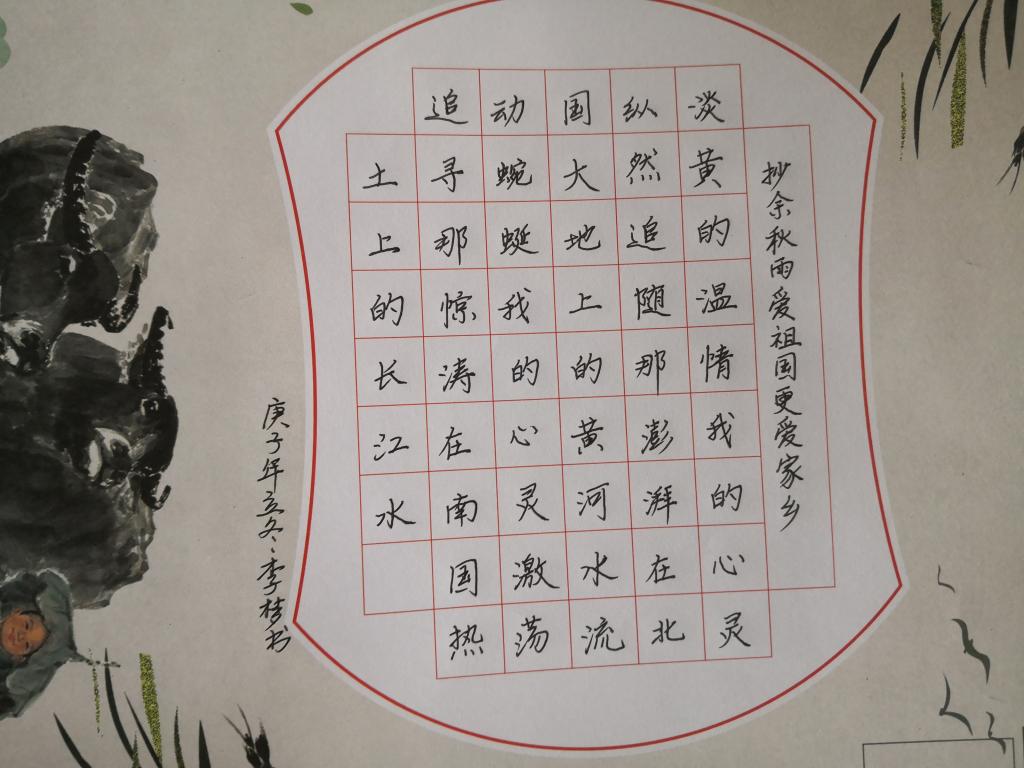 抄余秋雨爱祖国更爱家乡
淡黄的温情我的心灵
纵然追随那澎湃在北
国大地上的黄河水流
动蜿蜒我的心灵激荡
追寻那惊涛在南国热
土上的长江水
庚子年立冬、李梦书